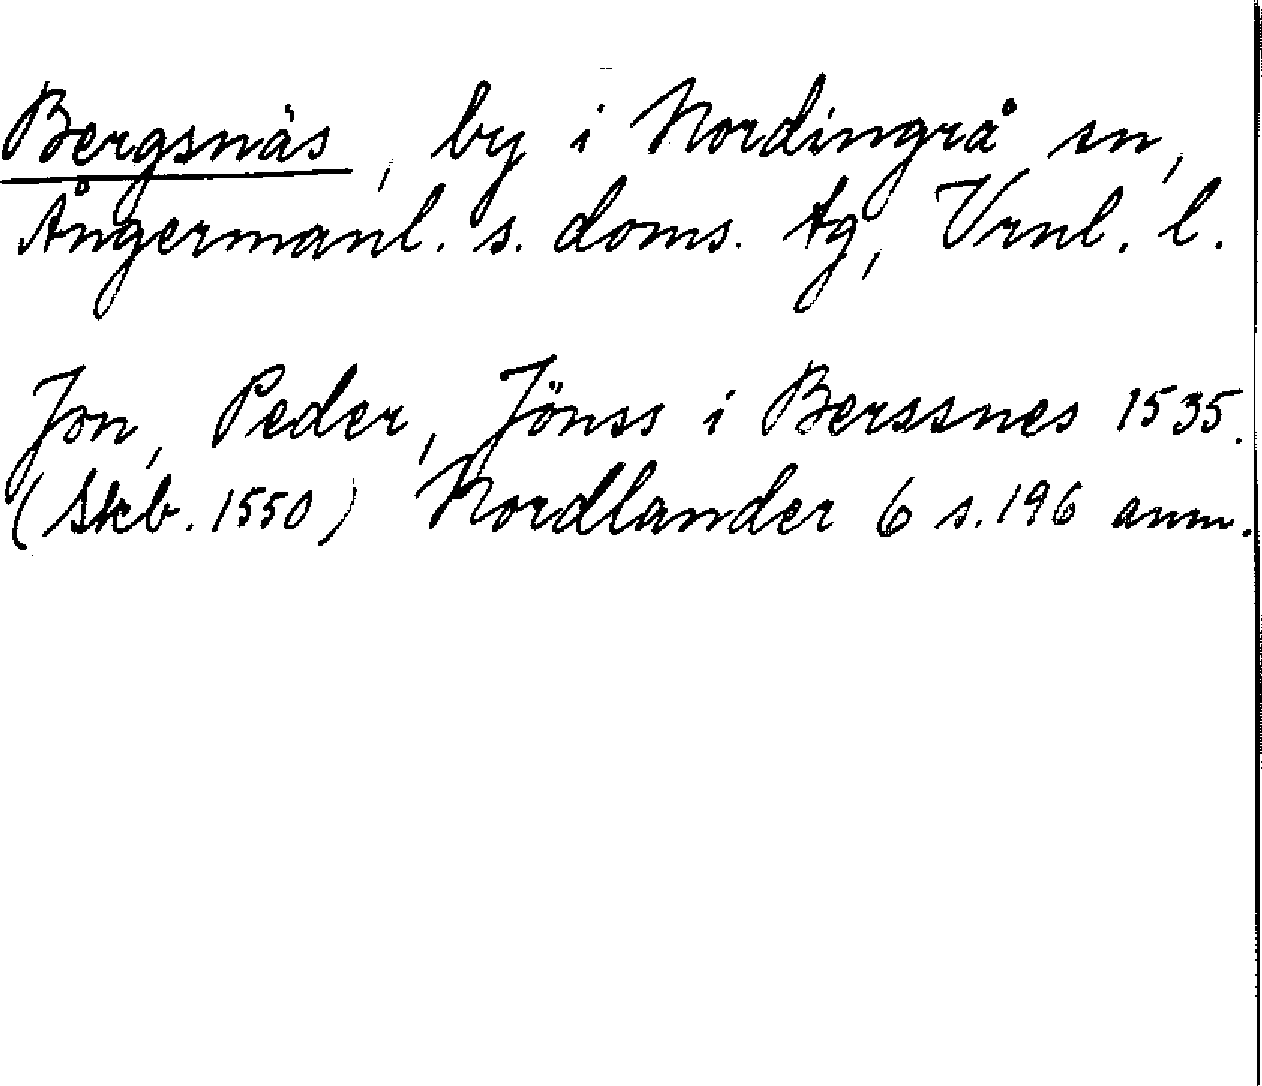 Bergsnäs, by i Nordingrå sn,
Ångermanl. s. doms. tg, Vrnl. l.
Jon, Peder, Jönss i Berssnes 1535.
(Skb. 1550) Nordlander 6 s. 196 anm.